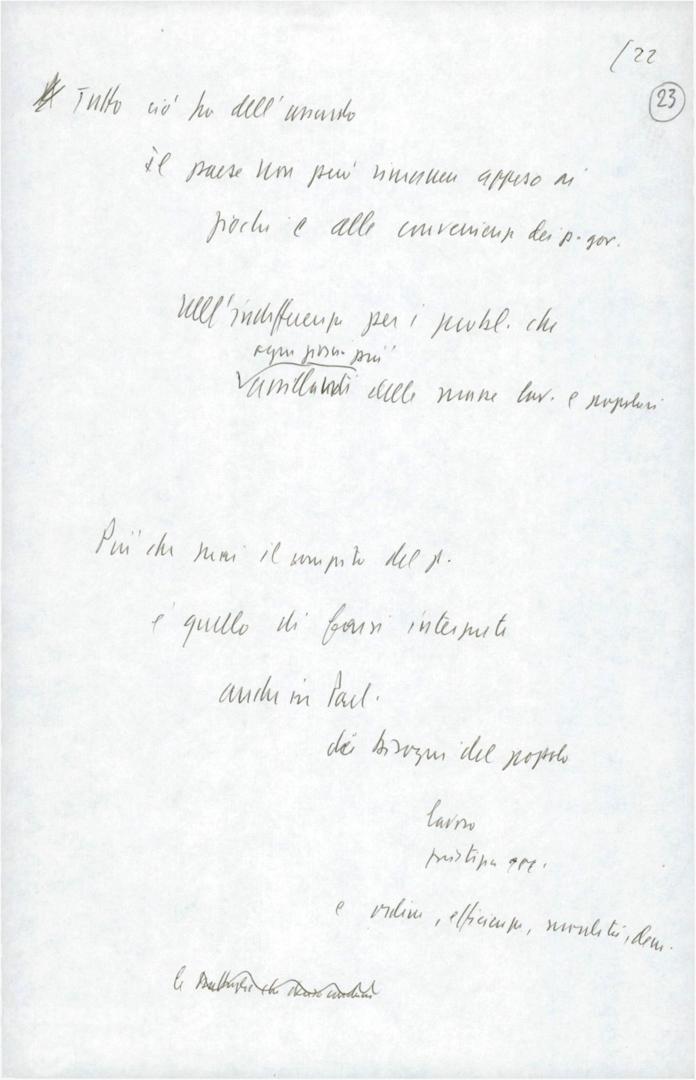 [22
23
Tutto ciò ha dell'assurdo
Il paese non può rimanere appeso ai
giochi e alle convenienze dei p. gov.
nell'indifferenza per i probl. che
ogni giorno più
assillanti delle masse lav. e popolari
Più che mai il compito del p.
è quello di farsi interprete
anche in Parl.
dei bisogni del popolo
lavoro
giustizia ecc.
e ordine, efficienza, moralità, dem.
le